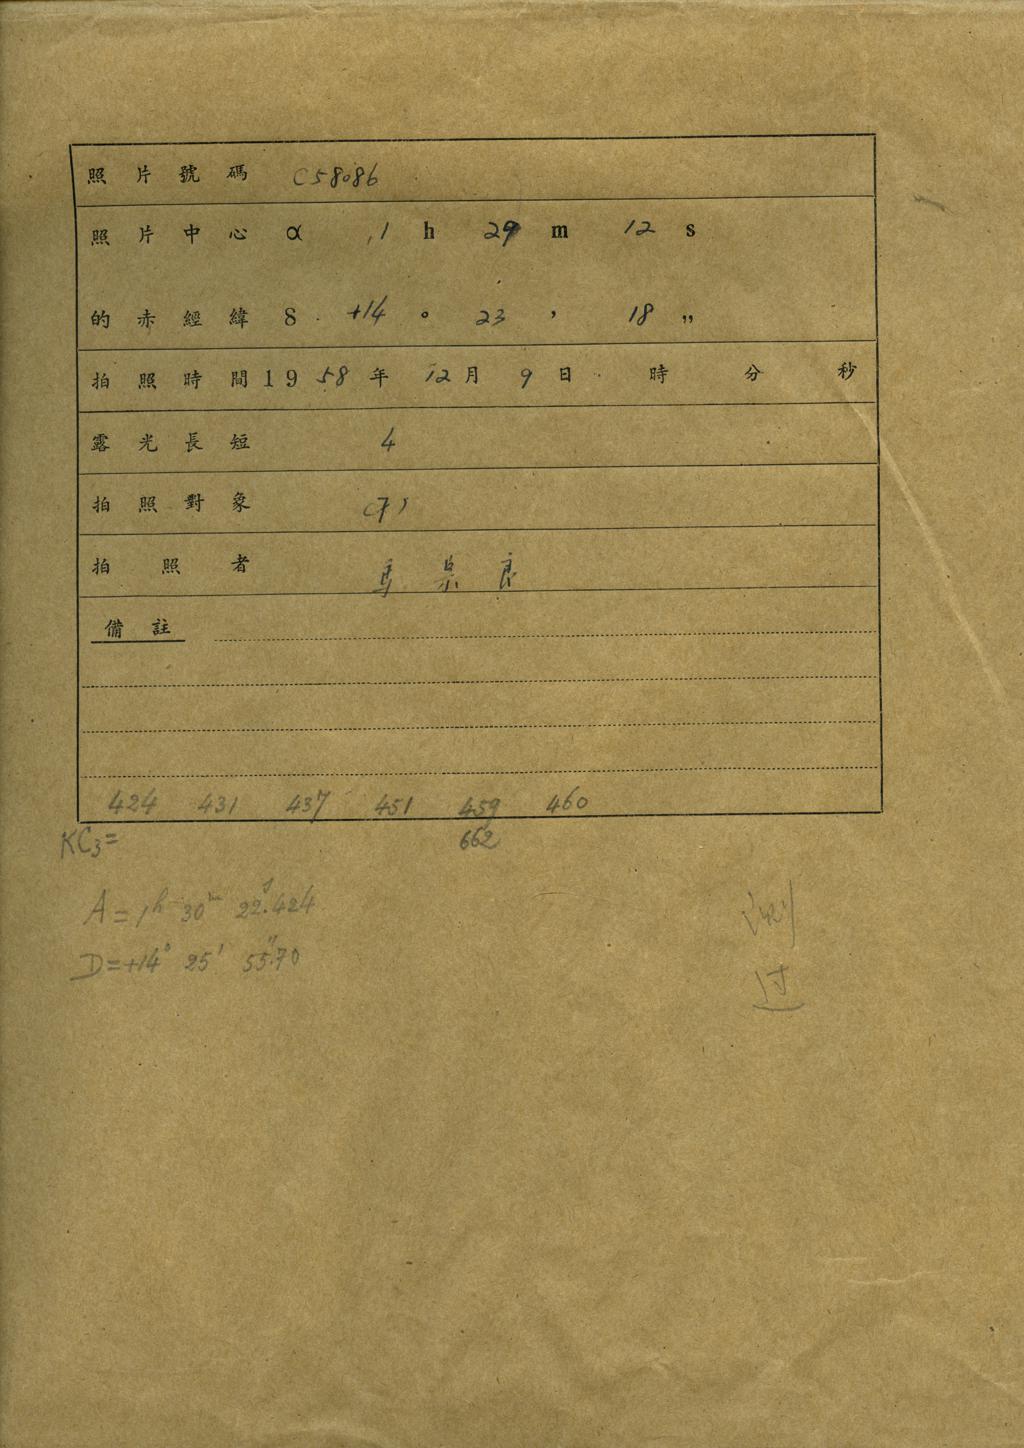 照片號碼 C58086
照片中心 α 1 h 29 m 12 s
的赤經緯 δ +14 ° 23 ’ 18 ”
拍照時間 1958年 12月 9日 時 分 秒
露光長短 4
拍照對象
拍照者 馬 良
備註
424 431 437 451 459 460
KC₃= 662
A = 1ʰ 30ᵐ 22ˢ.424
D = +14° 25′ 55″.70
测
过